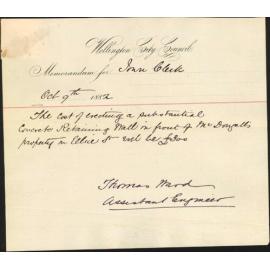 Wellington City Council
Memorandum for Town Clerk
Oct 9th 1882
The cost of erecting a substantial
Concrete Retaining Wall in front of Mr
property in St will be
Thomas Ward
Assistant Engineer